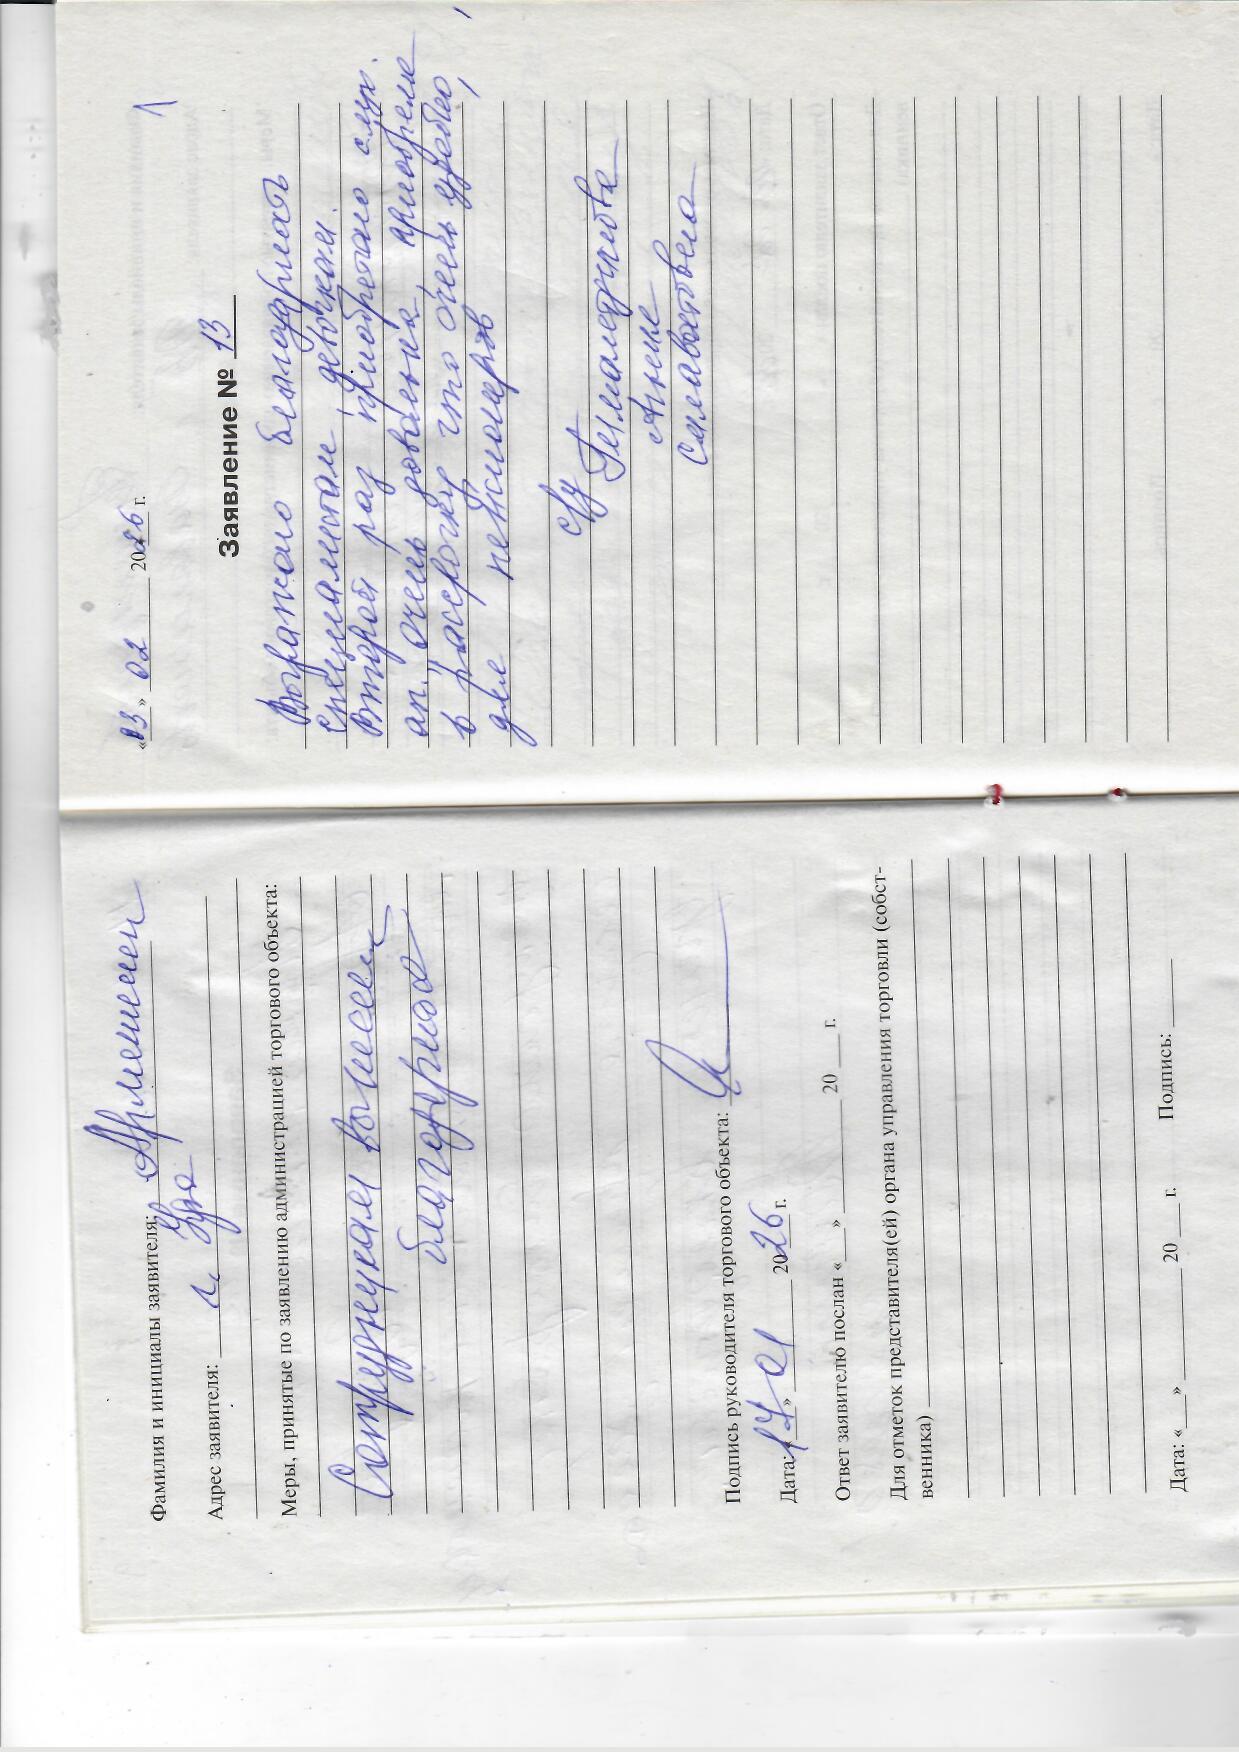 Фамилия и инициалы заявителя:
Адрес заявителя:
Меры, принятые по заявлению администрацией торгового объекта:
Сотрудникам вынесена
благодарность
Подпись руководителя торгового объекта:
Дата: «17» 01 2026 г.
Ответ заявителю послан «___» ________ 20 ___ г.
Для отметок представителя(ей) органа управления торговли (собст-
венника)
Дата: «___» ________ 20 ___ г. Подпись: ______
«03» 02 2026 г.
Заявление № 13
Выражаю благодарность
специалистам, девочкам.
Второй раз приобретаю слух.
ап. очень довольна, приобрела
в рассрочку что очень удобно,
для пенсионеров